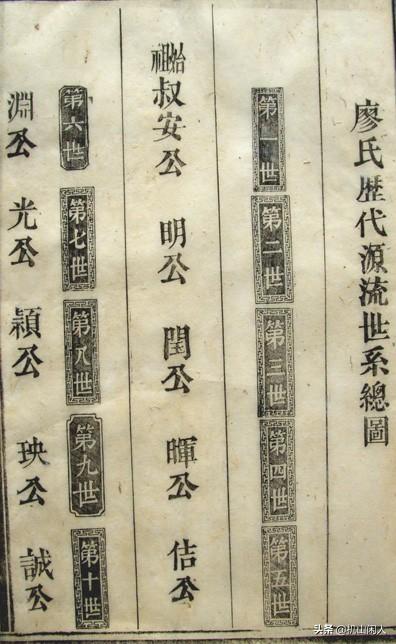 廖氏歷代源流世系總圖
第一世 第二世 第三世 第四世 第五世
始祖叔安公 明公 閏公 暉公 佶公
第六世 第七世 第八世 第九世 第十世
淵公 光公 穎公 映公 誠公
头条 @机山闲人